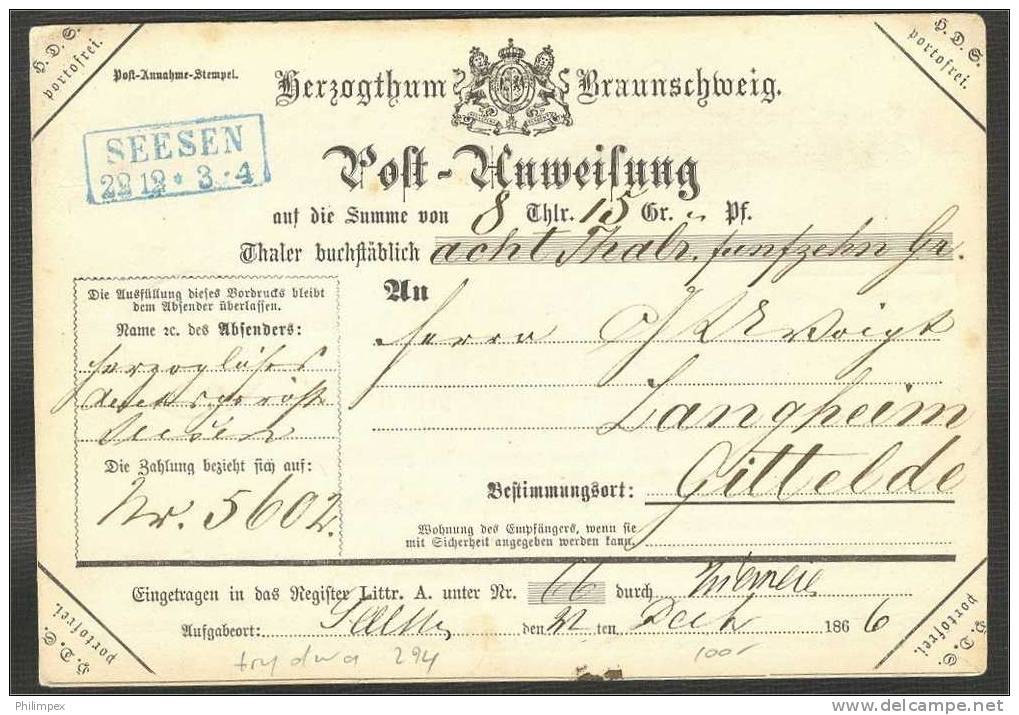 H. D. S.
portofrei.
H. D. S.
portofrei.
Post-Annahme-Stempel.
Herzogthum Braunschweig.
SEESEN
22 12 * 3.-4
Post-Anweisung
auf die Summe von 8 Thlr. 15 Gr. „ Pf.
Thaler buchstäblich acht Thalr. funfzehn Gr.
Die Ausfüllung dieses Vordrucks bleibt
dem Absender überlassen.
Name ꝛc. des Absenders:
Herzogliches
Seesen
Die Zahlung bezieht sich auf:
Nr. 5602.
An
Herrn Voigt
Langheim
Bestimmungsort: Gittelde
Wohnung des Empfängers, wenn sie
mit Sicherheit angegeben werden kann.
Eingetragen in das Register Littr. A. unter Nr. 66 durch
Aufgabeort: Seesen, den 22 ten Dec 1866
H. D. S.
portofrei.
H. D. S.
portofrei.
294
100-
Philimpex
www.delcampe.net